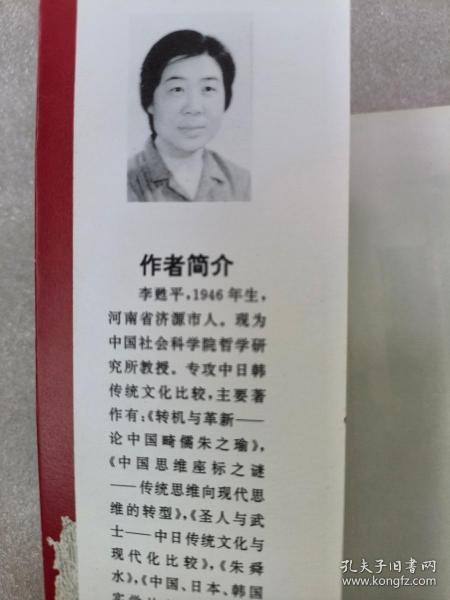 作者简介
李甦平,1946年生,
河南省济源市人。现为
中国社会科学院哲学研
究所教授。专攻中日韩
传统文化比较,主要著
作有:《转机与革新——
论中国畸儒朱之瑜》,
《中国思维座标之谜
——传统思维向现代思
维的转型》,《圣人与武
士——中日传统文化与
现代化比较》,《朱舜
水》,《中国、日本、韩国
孔夫子旧书网
www.kongfz.com